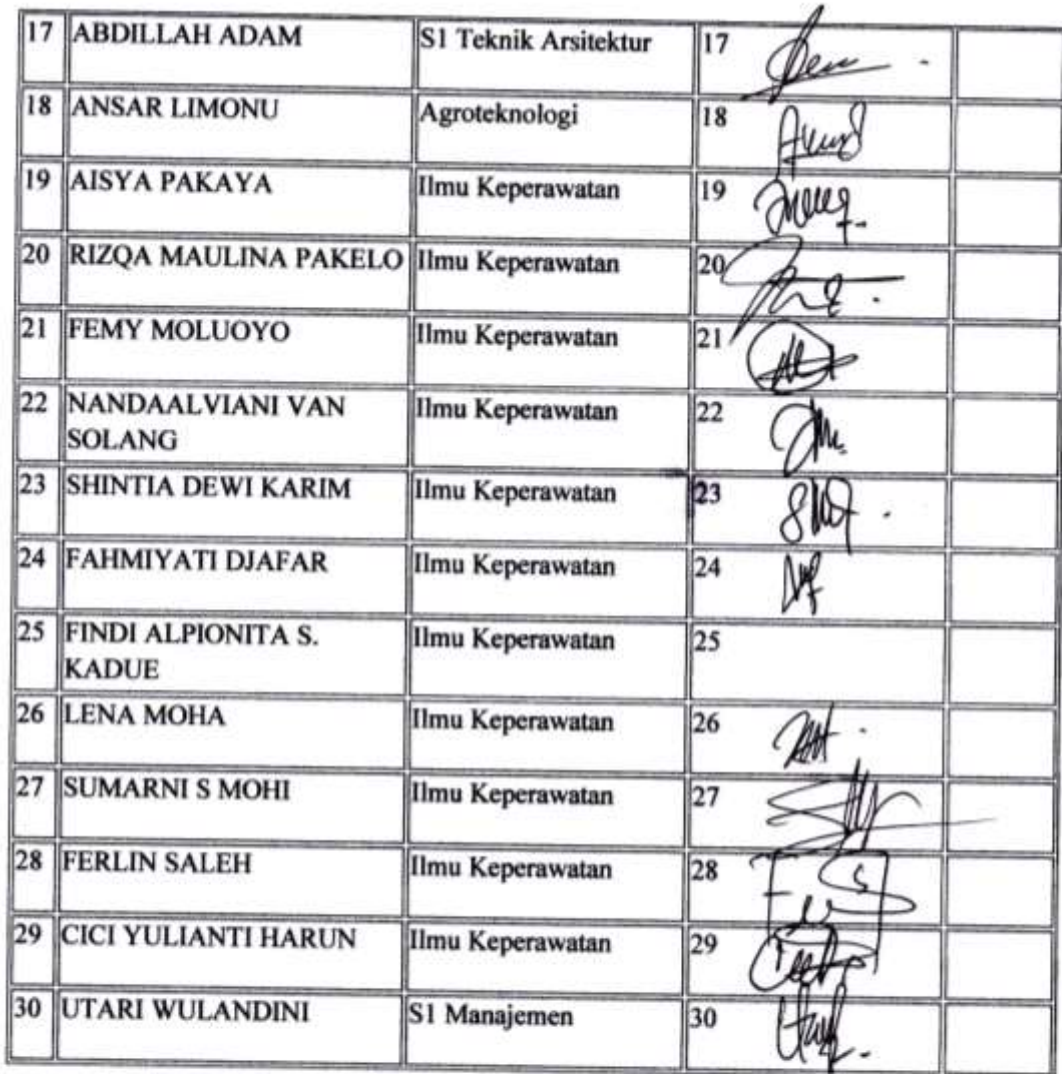 17 ABDILLAH ADAM S1 Teknik Arsitektur 17
18 ANSAR LIMONU Agroteknologi 18
19 AISYA PAKAYA Ilmu Keperawatan 19
20 RIZQA MAULINA PAKELO Ilmu Keperawatan 20
21 FEMY MOLUOYO Ilmu Keperawatan 21
22 NANDAALVIANI VAN Ilmu Keperawatan 22
SOLANG
23 SHINTIA DEWI KARIM Ilmu Keperawatan 23
24 FAHMIYATI DJAFAR Ilmu Keperawatan 24
25 FINDI ALPIONITA S. Ilmu Keperawatan 25
KADUE
26 LENA MOHA Ilmu Keperawatan 26
27 SUMARNI S MOHI Ilmu Keperawatan 27
28 FERLIN SALEH Ilmu Keperawatan 28
29 CICI YULIANTI HARUN Ilmu Keperawatan 29
30 UTARI WULANDINI S1 Manajemen 30